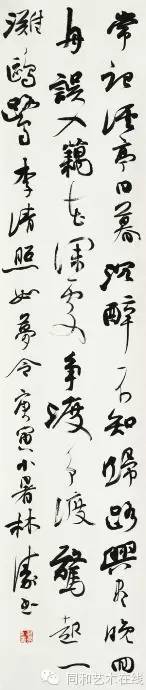 常记溪亭日暮沉醉不知归路兴尽晚回
舟误入藕花深处争渡争渡惊起一
滩鸥鹭李清照如梦令庚寅小暑林涛书
同和艺术在线